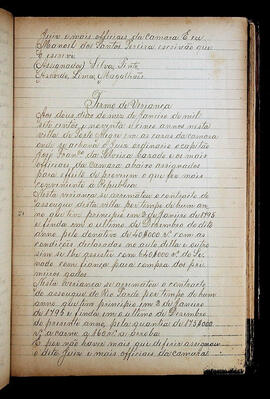 Juiz e mais officiaes da camara E eu
Manoel dos Santos Pereira escrivão que
Escrevi
(Assignados) Silva, Pinto
Rezende, Lima, Magalhães
Termo de Vereança
Aos dous dias do mez de Janeiro de mil
sete centos e noventa e cinco annos nesta
villa de Porto Alegre em as casas da camara
onde se achavão o Juiz ordinario o capitão
José Franco da Silveira Cazado e os mais
officiaes da camara abaixo assignados
para effeito de proverem o que for mais
conveniente a Republica
Nesta vereança se arrematou o contracto de
assougue desta villa por tempo de hum an
no que tem principio em 3 de Janeiro de 1795
e finda em o ultimo de Dezembro do dito
anno pelo donativo de 40$000 rs com as
condições declaradas no auto della e outro
sim se lhe assistir com 640$000 rs do Se
nado com fiança para compra dos pri
meiros gados
Nesta vereança se arrematou o contracto
de assougue do Rio Pardo por tempo de hum
anno que tem principio em 3 de Janeiro
de 1795 e findo em o ultimo de Dezembro
do presente anno pela quantia de 175$000
rs a carne a 160 rs a arroba
E por não haver mais que deferir assignou
o dito Juiz e mais officiaes da camara